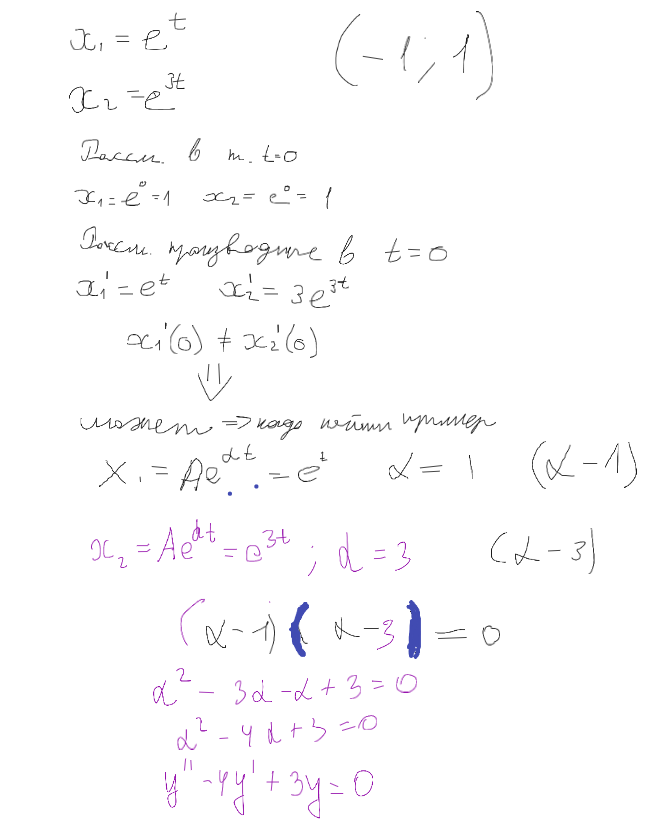 x₁ = e^t (-1; 1)
x₂ = e^{3t}
Рассм. в т. t=0
x₁ = e⁰ = 1 x₂ = e⁰ = 1
Рассм. производные в t = 0
x₁' = e^t x₂' = 3e^{3t}
x₁'(0) ≠ x₂'(0)
⇓
может => надо найти пример
x₁ = Ae^{αt} = e^t α = 1 (α - 1)
x₂ = Ae^{αt} = e^{3t}; α = 3 (α - 3)
(α - 1)(α - 3) = 0
α² - 3α - α + 3 = 0
α² - 4α + 3 = 0
y'' - 4y' + 3y = 0